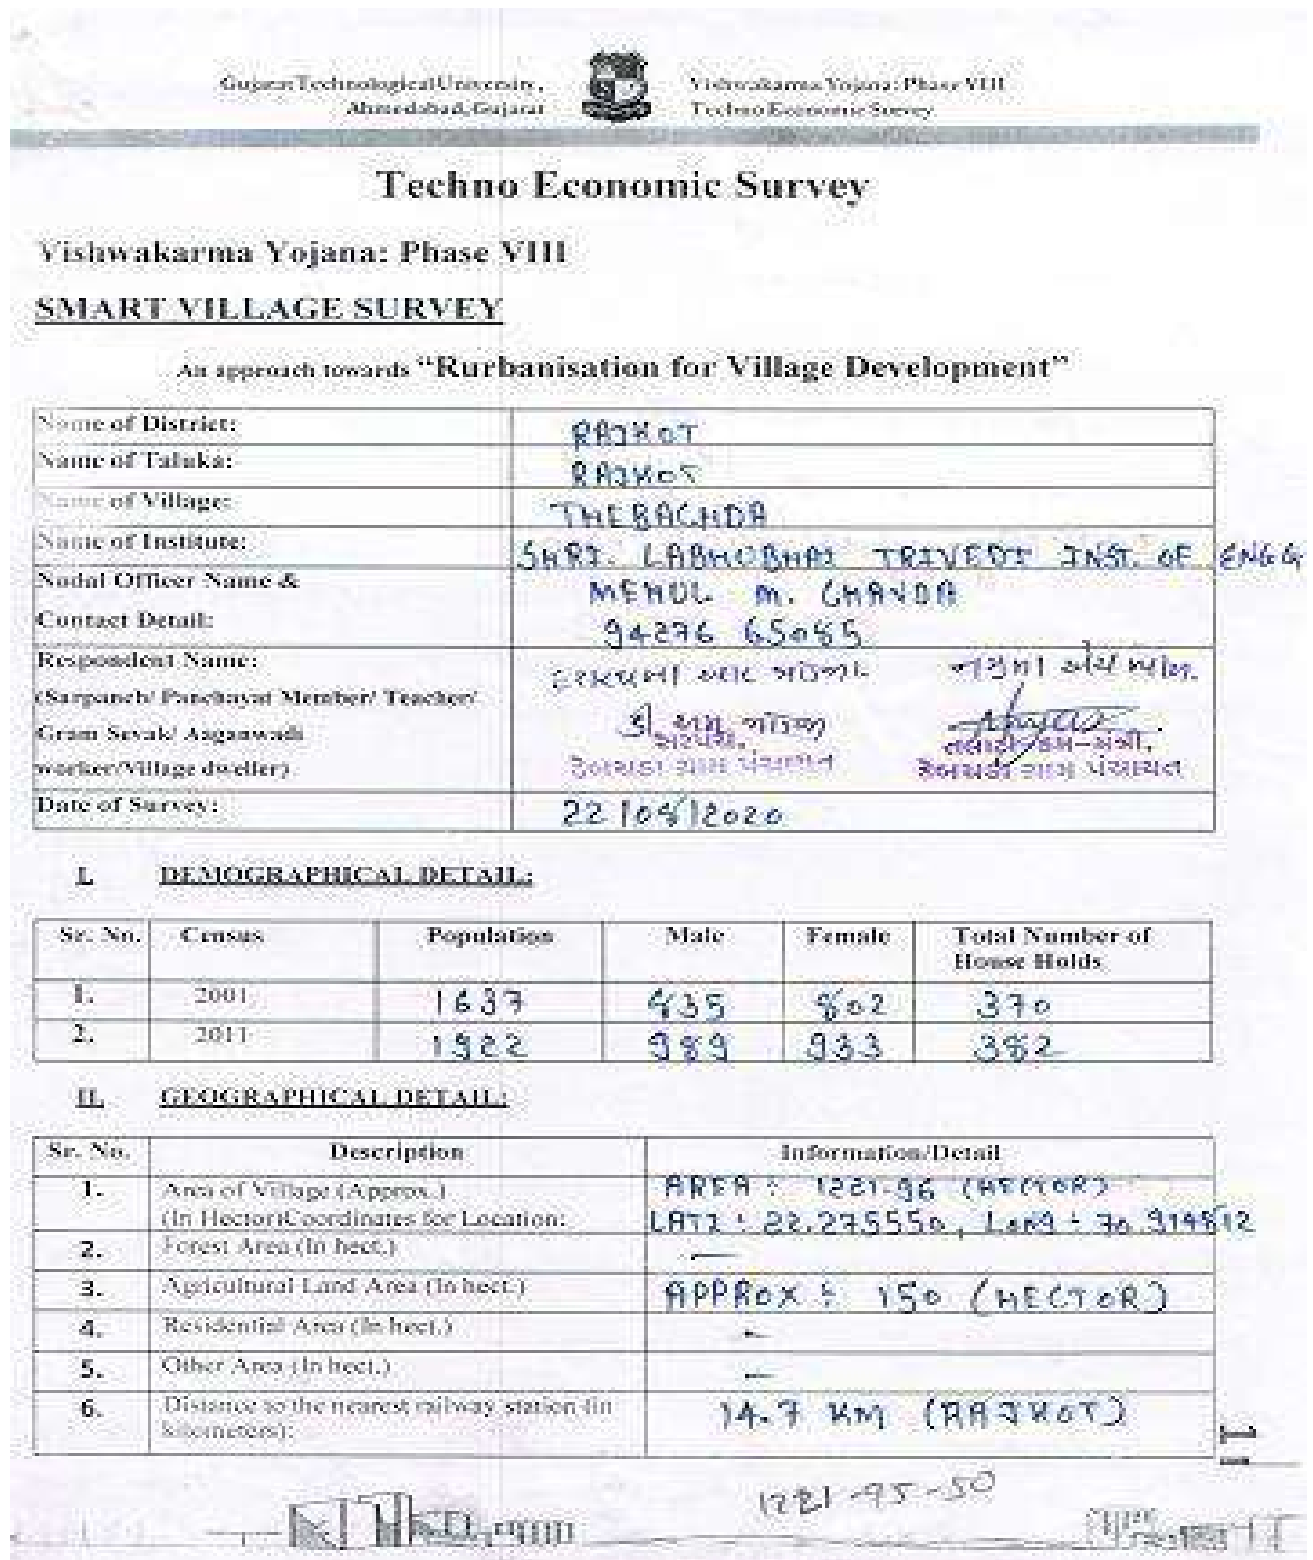 Gujarat Technological University,
Ahmedabad, Gujarat
Vishwakarma Yojana: Phase VIII
Techno Economic Survey
Techno Economic Survey
Vishwakarma Yojana: Phase VIII
SMART VILLAGE SURVEY
An approach towards "Rurbanisation for Village Development"
Name of District: RAJKOT
Name of Taluka: RAJKOT
Name of Village: THEBACHDA
Name of Institute: SHRI. LABHUBHAI TRIVEDI INST. OF ENGG
Nodal Officer Name & MEHUL M. CHAVDA
Contact Detail: 94276 65085
Respondent Name:
(Sarpanch/ Panchayat Member/ Teacher/
Gram Sevak/ Aaganwadi સરપંચ, તલાટી કમ-મંત્રી,
worker/Village dweller) ઠેબચડા ગ્રામ પંચાયત ઠેબચડા ગ્રામ પંચાયત
Date of Survey: 22/08/2020
I. DEMOGRAPHICAL DETAIL:
Sr. No. Census Population Male Female Total Number of
House Holds
1. 2001 1637 835 802 370
2. 2011 1922 989 933 382
II. GEOGRAPHICAL DETAIL:
Sr. No. Description Information/Detail
1. Area of Village (Approx.) AREA : 1221.96 (HECTOR)
(In Hector)Coordinates for Location: LATI : 22.275550, Long : 70.914812
2. Forest Area (In hect.) —
3. Agricultural Land Area (In hect.) APPROX : 150 (HECTOR)
4. Residential Area (In hect.) -
5. Other Area (In hect.) -
6. Distance to the nearest railway station (in 14.7 KM (RAJKOT)
kilometers):